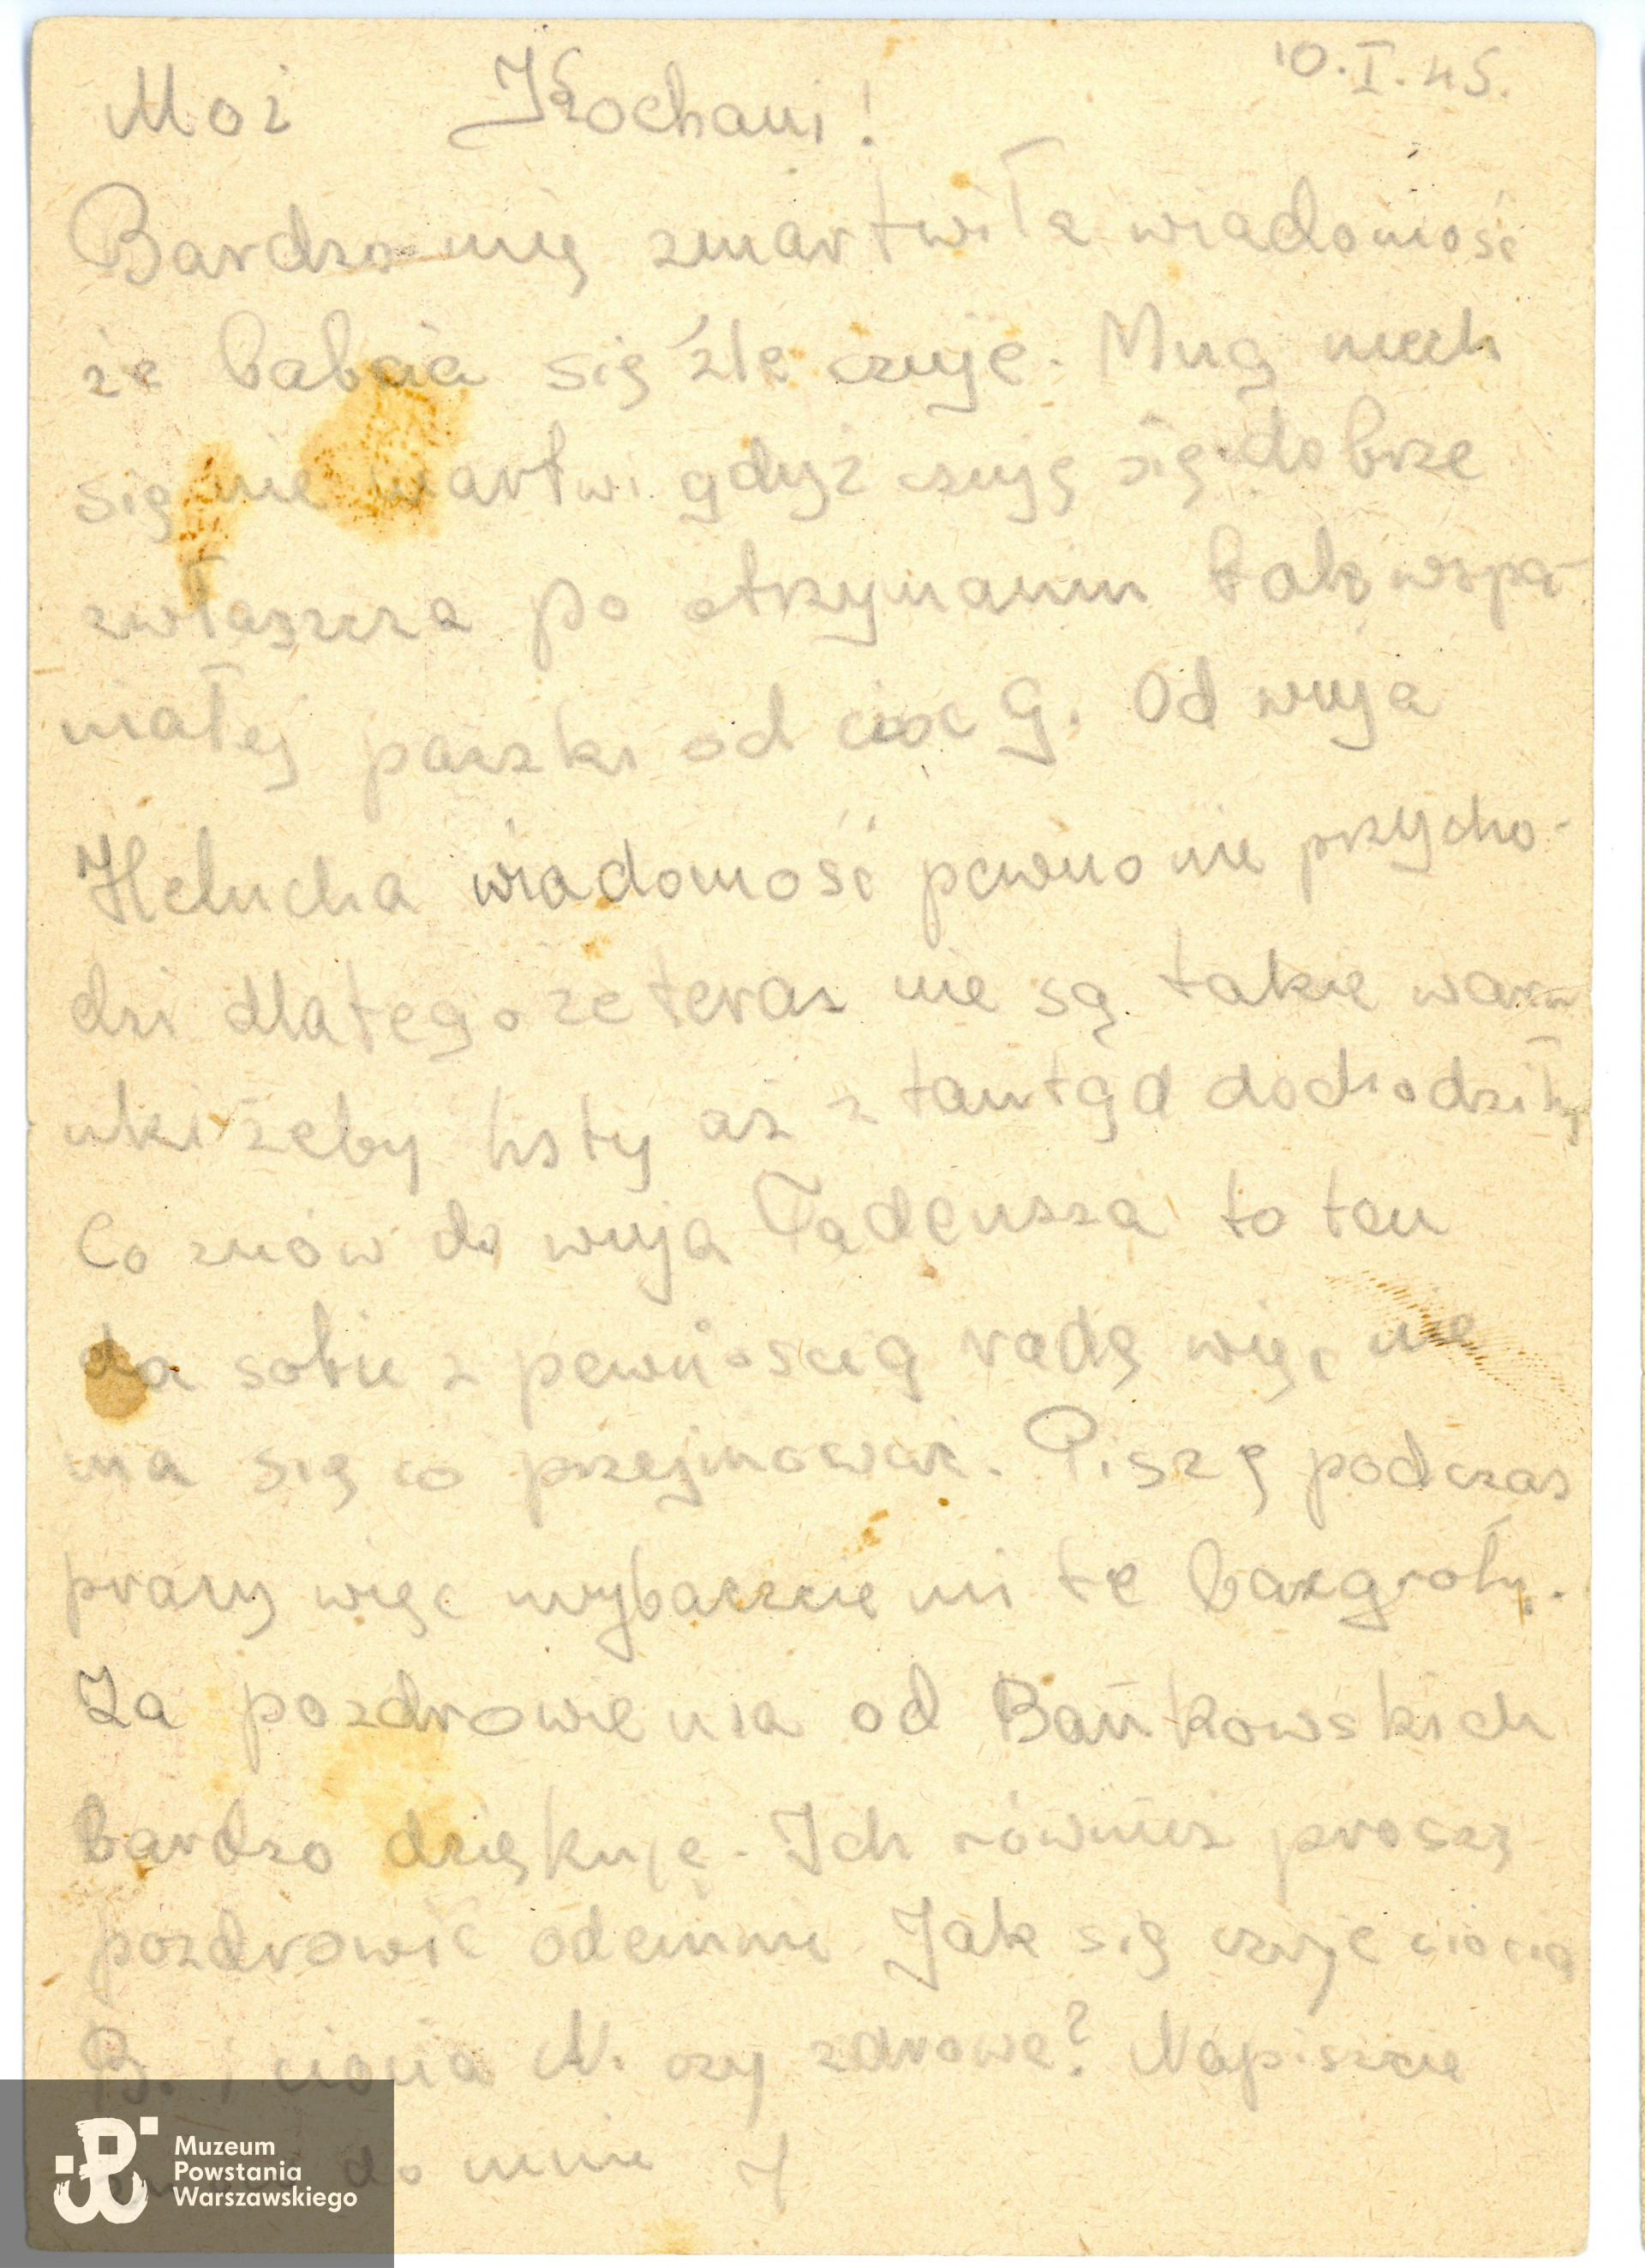 10.I.45.
Moi Kochani!
Bardzo mię zmartwiła wiadomość
że babcia się źle czuje. Mną niech
się nie martwi gdyż czuję się dobrze
zwłaszcza po otrzymaniu tak wspa-
niałej paczki od cioc G. Od wuja
Helucha wiadomość pewno nie przycho-
dzi dlatego że teraz nie są takie waru
nki żeby listy aż z tamtąd dochodziły
Co znów do wuja Tadeusza to ten
da sobie z pewnością radę więc nie
ma się co przejmować. Piszę podczas
pracy więc wybaczcie mi te bazgroły.
Za pozdrowienia od Bańkowskich
bardzo dziękuję. Ich również proszę
pozdrowić odemnie. Jak się czuje ciocia
B. i ciocia N. czy zdrowe? Napiszcie
do mnie J
Muzeum
Powstania
Warszawskiego